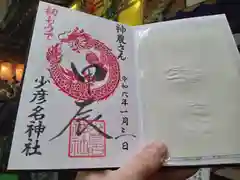 初もうで
神農さん
甲辰
少彦名神社
令和六年一月
日